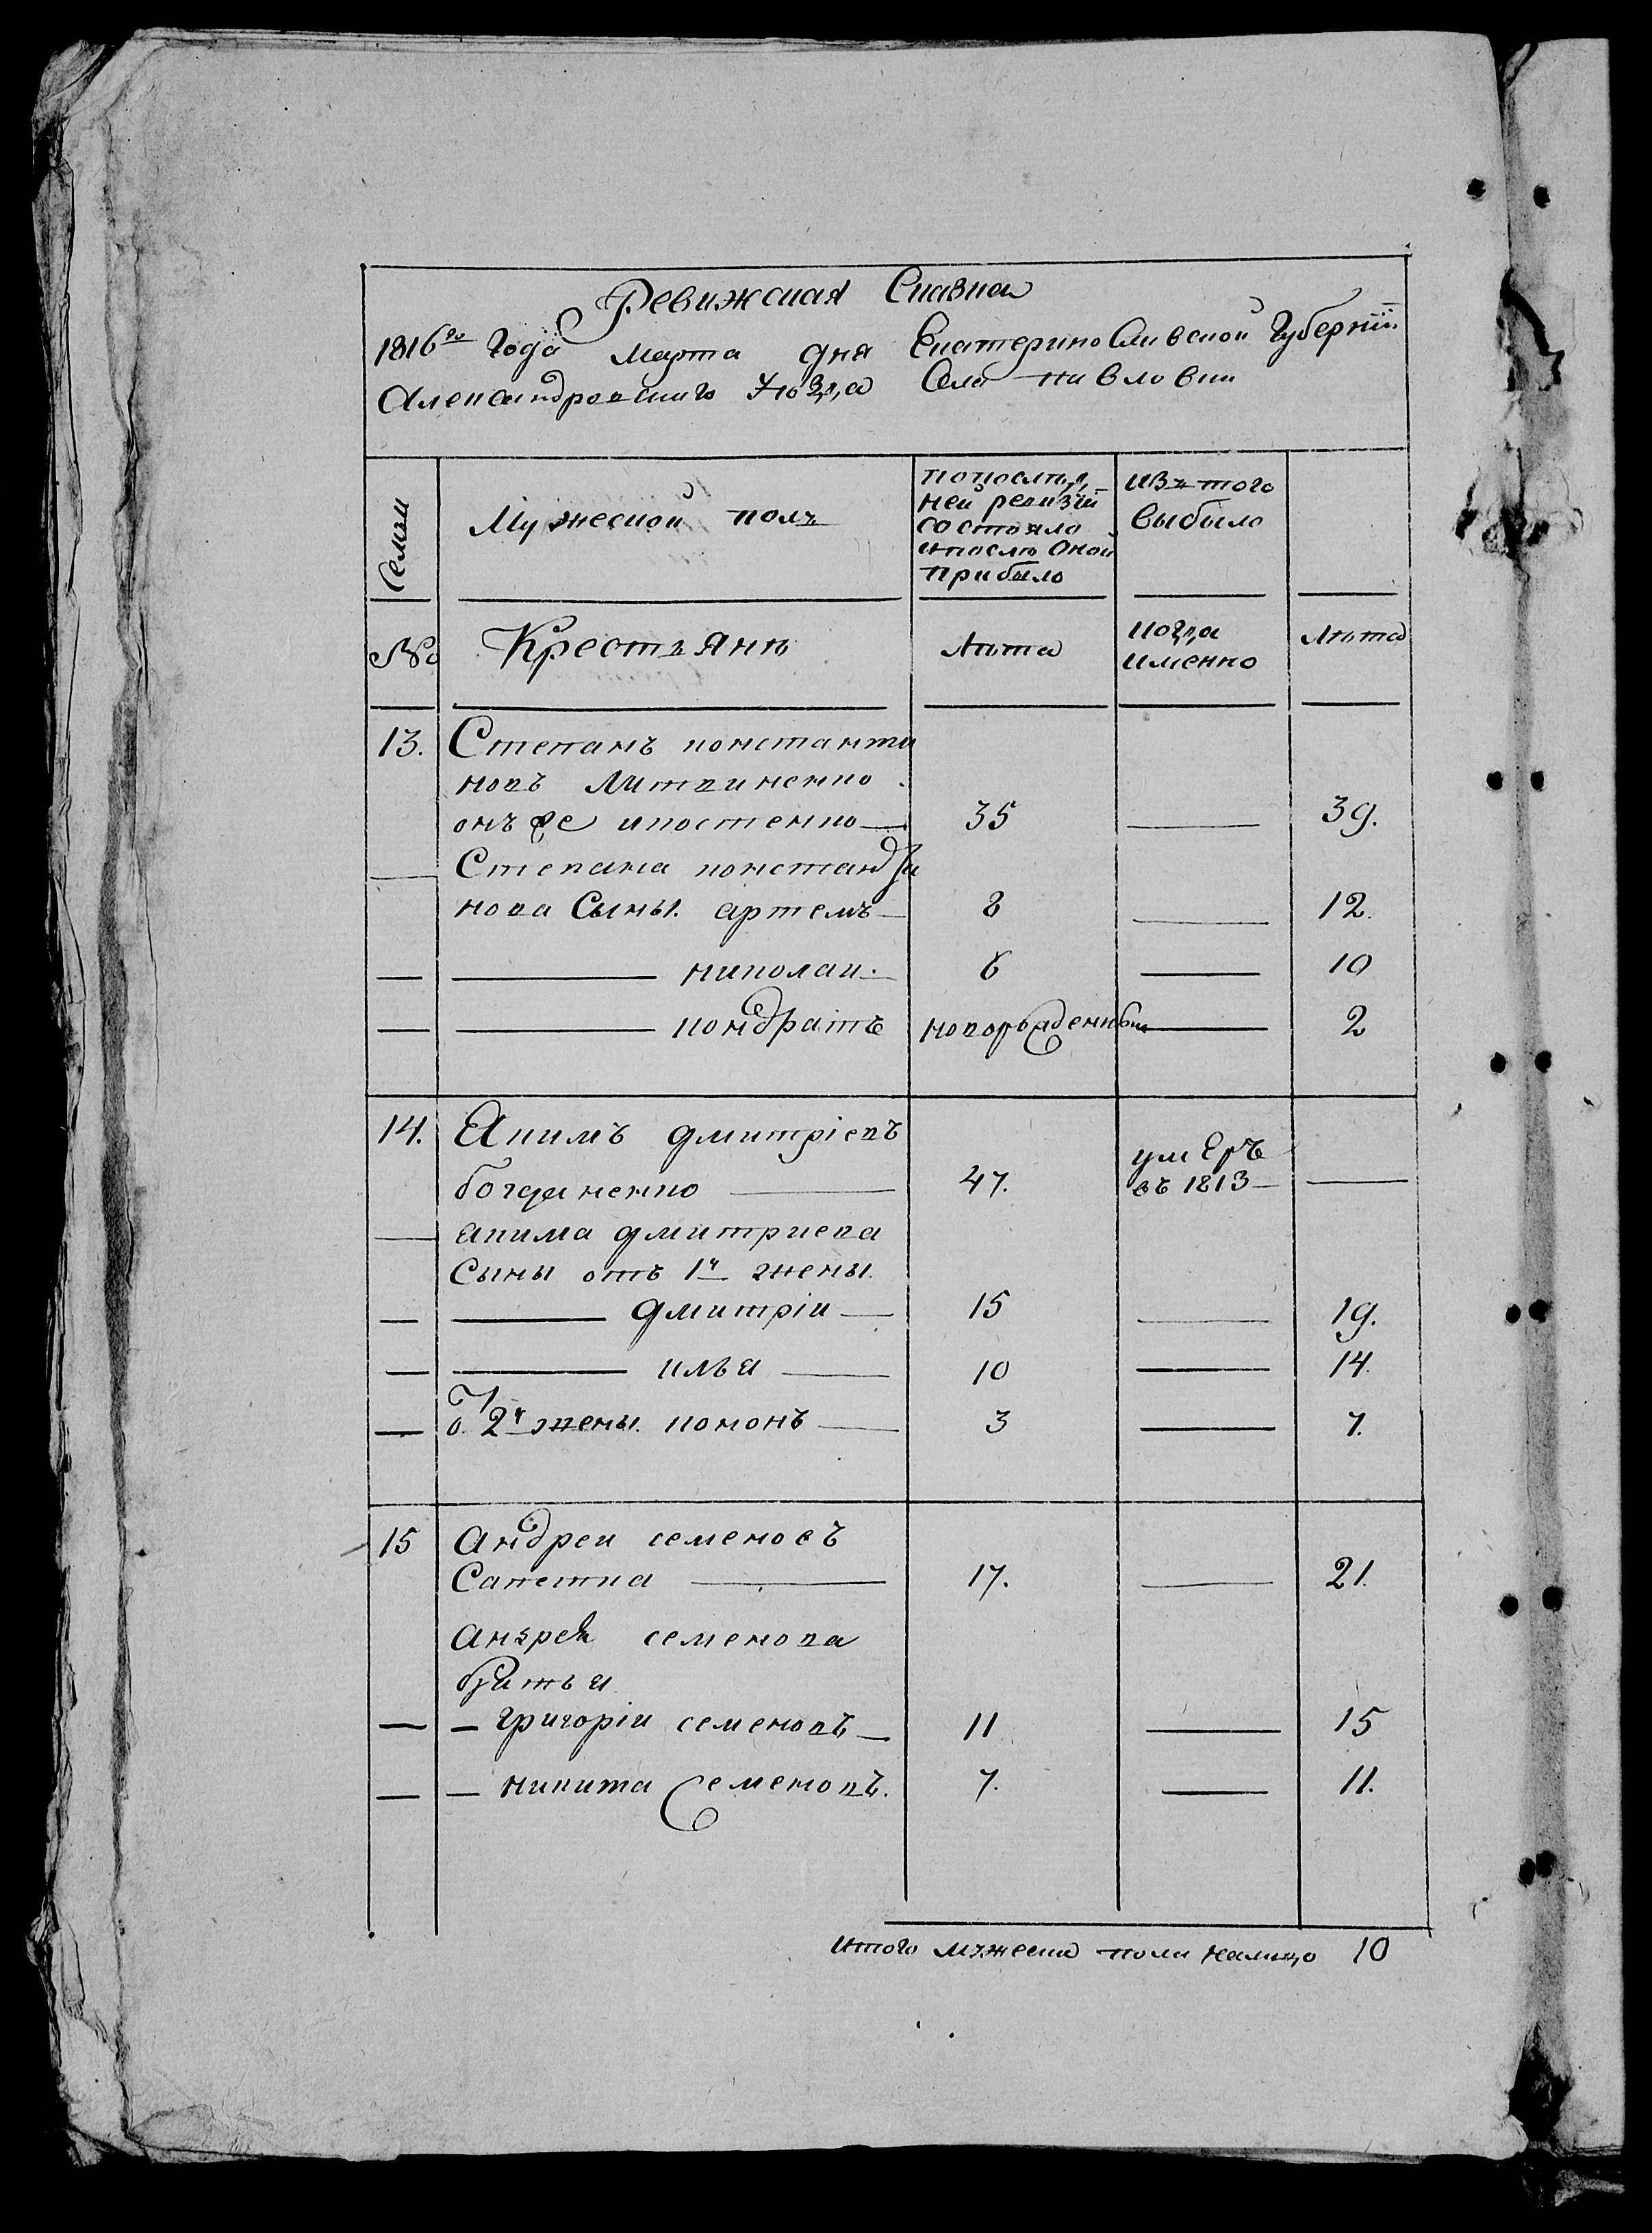 Ревижская Сказка
1816го Года Марта дня Екатерино Славской Губернїи
Александровскаго уезда Села павловки
Семьи
Мужеской полъ
попослед,
ней ревизїи
состояло
ипосле оной
прибыло
изъ того
выбыло
№
Крестъяне
лета
когда
именно
лета
13. Степанъ константи
новъ литвиненко
онъ же костенко — 35 — 39.
— Степана константи
нова Сыны. артемъ — 8 — 12.
— — николаи. — 6 — 10
— — кондратъ новорожденный — 2
14. Якимъ дмитрїевъ
богданенко — 47. умеръ въ 1813 — —
— якима дмитриева
Сыны отъ 1й жены.
— — дмитрїи — 15 — 19.
— — илья — 10 — 14.
— от 2й жены. кононъ — 3 — 7.
15 Андреи семеновъ
Сапетка — 17. — 21.
Андрея семенова
братья
— — григорїи семеновъ — 11 — 15
— — никита Семеновъ. 7. — 11.
итого мужеска пола налицо 10